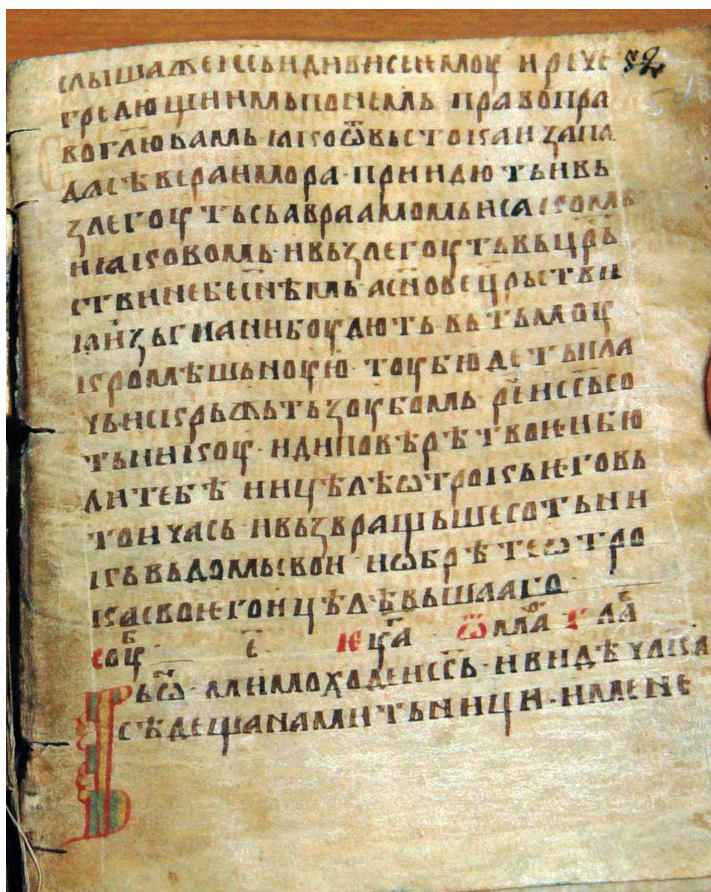 слышаже іс҃ь и диви се ѥмоу и рече
гредющиимь по нѥмь право пра
во гл҃ю вамь ꙗко ѿ вьстока и запа
да сѣвера и мора придють и вь
ꙁлегоуть сь авраамомь и саакомь
и ꙗковомь и вьꙁлегоуть вь цр҃ь
стви небеснѣмь а сн҃ове цр҃ьстви
ꙗ иꙁьгнани боудють вь тьмоу
кромѣшьноую тоу боюдеть пла
чь и скрьжьть ꙁоубомь реч҃ іс҃ь со
тьникоу иди по вѣрѣ твоѥи бю
ди тебѣ и ицѣлѣ ѡтрокь ѥго вь
тои чась и вьꙁвращьше сотьни
кь вь домь свои и ѡбрѣте ѡтро
ка своѥго ицѣлѣвьшааго
соуб҃ і҃ ѥуⷢ҇а ѿ маѳⷣ гла҃
Вь ѡ҃ мимоходе іс҃ь и видѣ чл҃ка
сѣдеща на митьници имене